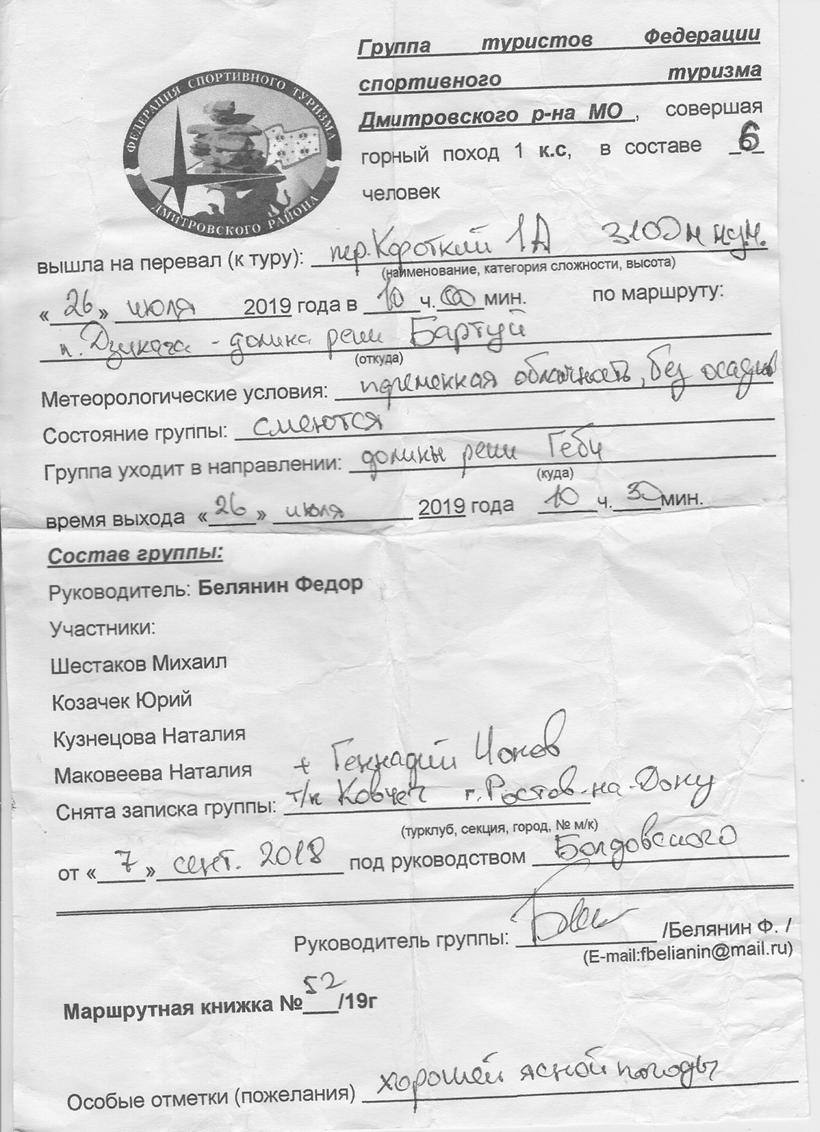 ФЕДЕРАЦИЯ СПОРТИВНОГО ТУРИЗМА
ДМИТРОВСКОГО РАЙОНА
Группа туристов Федерации
спортивного туризма
Дмитровского р-на МО , совершая
горный поход 1 к.с, в составе 6
человек
вышла на перевал (к туру): пер. Короткий 1А 3100 м н.у.м.
(наименование, категория сложности, высота)
« 26 » июля 2019 года в 10 ч. 00 мин. по маршруту:
- долина реки Бартуй
(откуда)
Метеорологические условия: переменная облачность, без осадков
Состояние группы: смеются
Группа уходит в направлении: долины реки Геби
(куда)
время выхода « 26 » июля 2019 года 10 ч. 30 мин.
Состав группы:
Руководитель: Белянин Федор
Участники:
Шестаков Михаил
Козачек Юрий
Кузнецова Наталия
Маковеева Наталия + Геннадий
Снята записка группы: т/к Ковчег г. Ростов-на-Дону
(турклуб, секция, город, № м/к)
от « 7 » сент. 2018 под руководством Болдовского
Руководитель группы: /Белянин Ф. /
(E-mail:fbelianin@mail.ru)
Маршрутная книжка № 52 /19г
Особые отметки (пожелания) хорошей ясной погоды